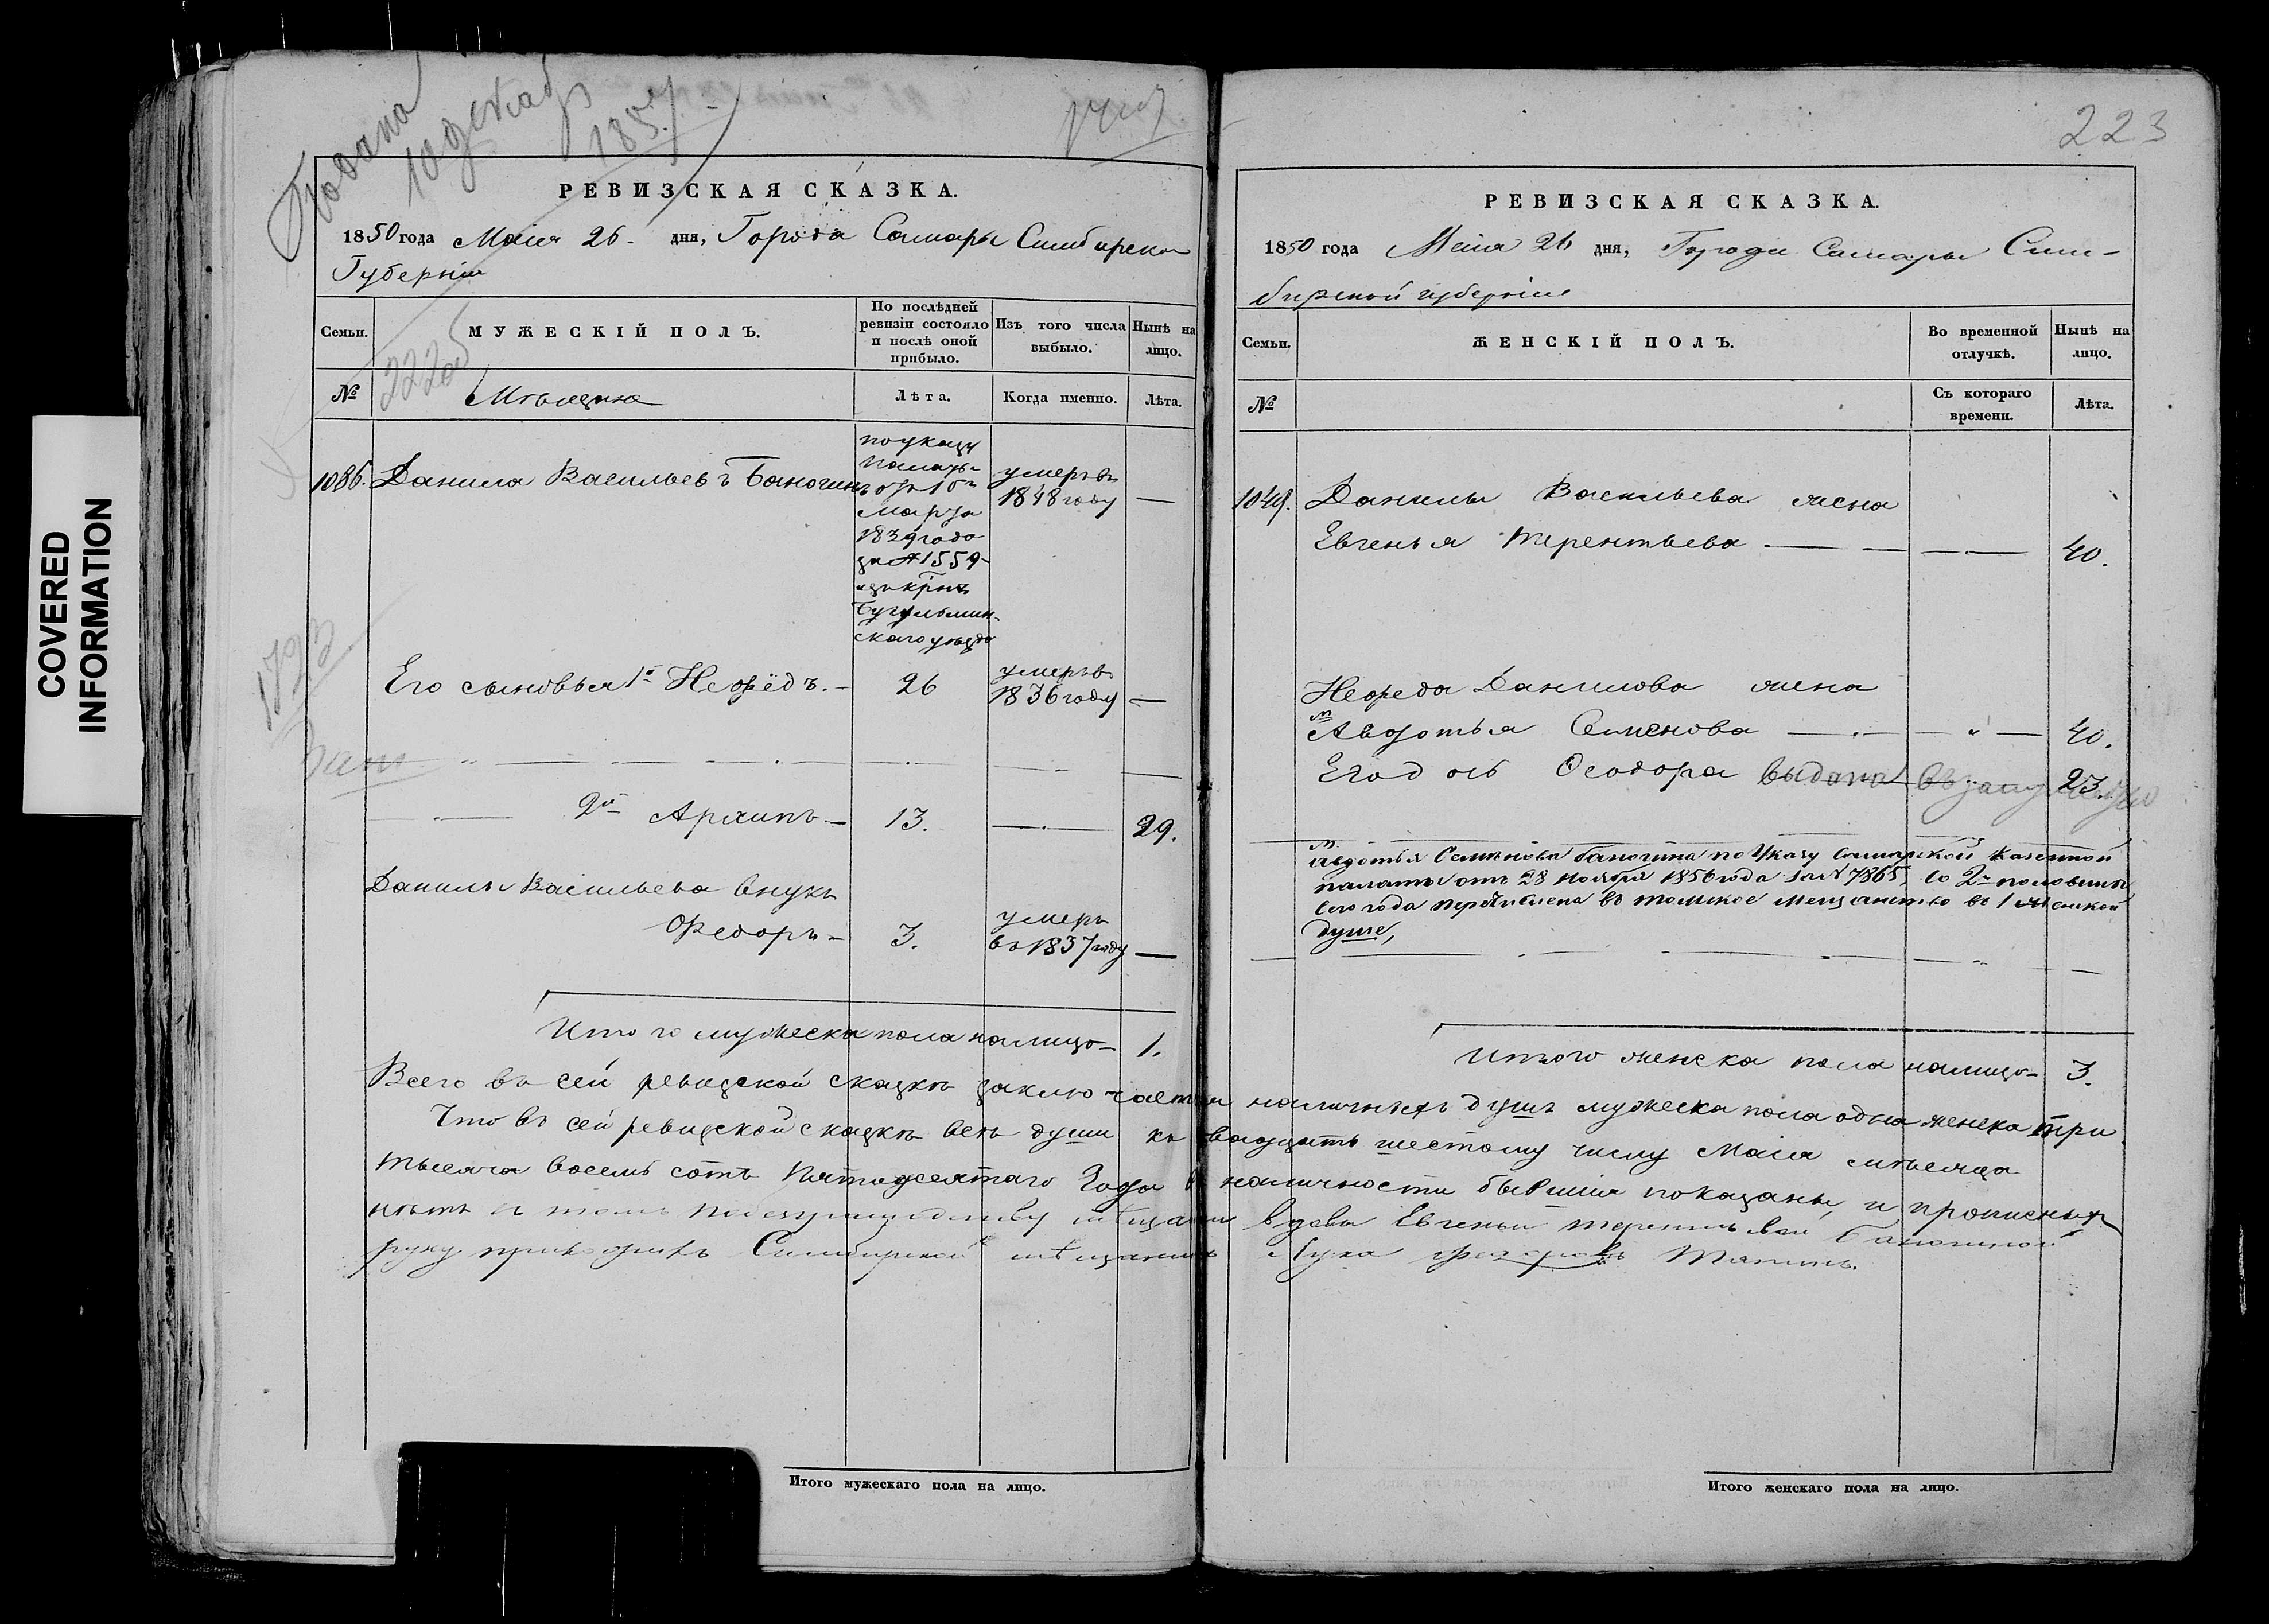 Подана
10 декаб
1857
РЕВИЗСКАЯ СКАЗКА.
1850 года Маія 26. дня, Города Самары Симбирской
Губерніи
Семьи.
МУЖЕСКІЙ ПОЛЪ.
По послѣдней ревизіи состояло и послѣ оной прибыло.
Изъ того числа выбыло.
Нынѣ на лицо.
№
222об
Мѣщане
Лѣта.
Когда именно.
Лѣта.
1086. Данила Васильевъ Баногинъ
по указу
палаты
отъ 16го
марта
1839 года
за № 1559
изъ крти
Бугульмин-
скаго уѣзда
умеръ въ
1848 году —
Его сыновья 1й Нефёдъ. — 26
умеръ въ
1836 году —
2й Архипъ — 13. — 29.
Данилы Васильева внукъ
Ѳедоръ — 3.
умеръ
въ 1837 году —
Итого мужеска пола налицо — 1.
Всего въ сей ревизской сказкѣ заключается наличныхъ душъ мужеска пола одна женска три
Что въ сей ревизской сказкѣ всѣ души къ двадцать шестому числу Маія мѣсяца
тысяча восемь сотъ пятидесятаго Года въ наличности бывшія показаны, и прописныхъ
нѣтъ въ томъ мѣщанки вдовы Евгеньи Терентьевой Баногиной
руку приложилъ Симбирской мѣщанинъ Лука
Итого мужескаго пола на лицо.
223
РЕВИЗСКАЯ СКАЗКА.
1850 года Маія 26 дня, Города Самары Сим-
бирской губерніи
Семьи.
ЖЕНСКІЙ ПОЛЪ.
Во временной отлучкѣ.
Нынѣ на лицо.
№
Съ котораго времени.
Лѣта.
1049. Данилы Васильева жена
Евгенья Терентьева — 40.
Нефеда Данилова жена
Авдотья Семенова — 40.
Его дочь Ѳеодора выдана въ замужество 23.
Авдотья Семенова Баногина по Указу Самарской Казенной
палаты отъ 28 Ноября 1856 года за № 7865, со 2й половины
сего года перечислена въ томское мещанство въ 1 женской
душе,
Итого женска пола налицо — 3.
Итого женскаго пола на лицо.
COVERED
INFORMATION